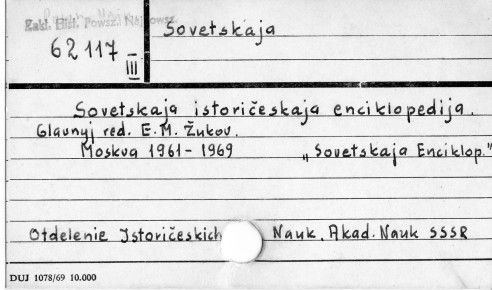 Zakł. Hist. Powsz. Najnowsz.
Sovetskaja
62 117
III
Sovetskaja istoričeskaja enciklopedija.
Glavnyj red. E.M. Žukov.
Moskva 1961-1969 „Sovetskaja Enciklop."
Otdelenie Istoričeskich Nauk. Akad. Nauk SSSR
DUJ 1078/69 10.000